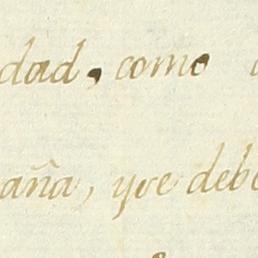 dad, como
aña, yve deb